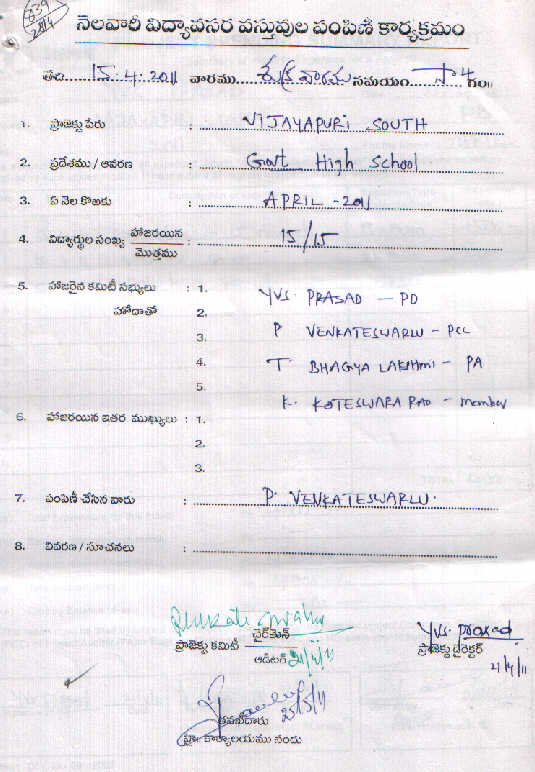 839
28/4
నెలవారీ విద్యావసర వస్తువుల పంపిణీ కార్యక్రమం
తేది 15.4.2011 వారము శుక్రవారము సమయం సా 4 గం॥
1. ప్రాజెక్టు పేరు : VIJAYAPURI SOUTH
2. ప్రదేశము / ఆవరణ : Govt High School
3. ఏ నెల కొఱకు : APRIL - 2011
4. విద్యార్థుల సంఖ్య హాజరయిన / మొత్తము : 15/15
5. హాజరైన కమిటీ సభ్యులు : 1. YVS. PRASAD — PD
హోదాతో 2.
3. P VENKATESWARLU - PCC
4. T BHAGYA LAKSHMI - PA
5. K. KOTESWARA RAO - Member
6. హాజరయిన ఇతర ముఖ్యులు : 1.
2.
3.
7. పంపిణీ చేసిన వారు : P. VENKATESWARLU.
8. వివరణ / సూచనలు :
ప్రాజెక్టు కమిటీ చైర్‌మెన్
ఆడిటర్ 21/4/11
YVS. prasad
ప్రాజెక్టు డైరెక్టర్
21/4/11
25/5/11
కార్యాలయము నందు